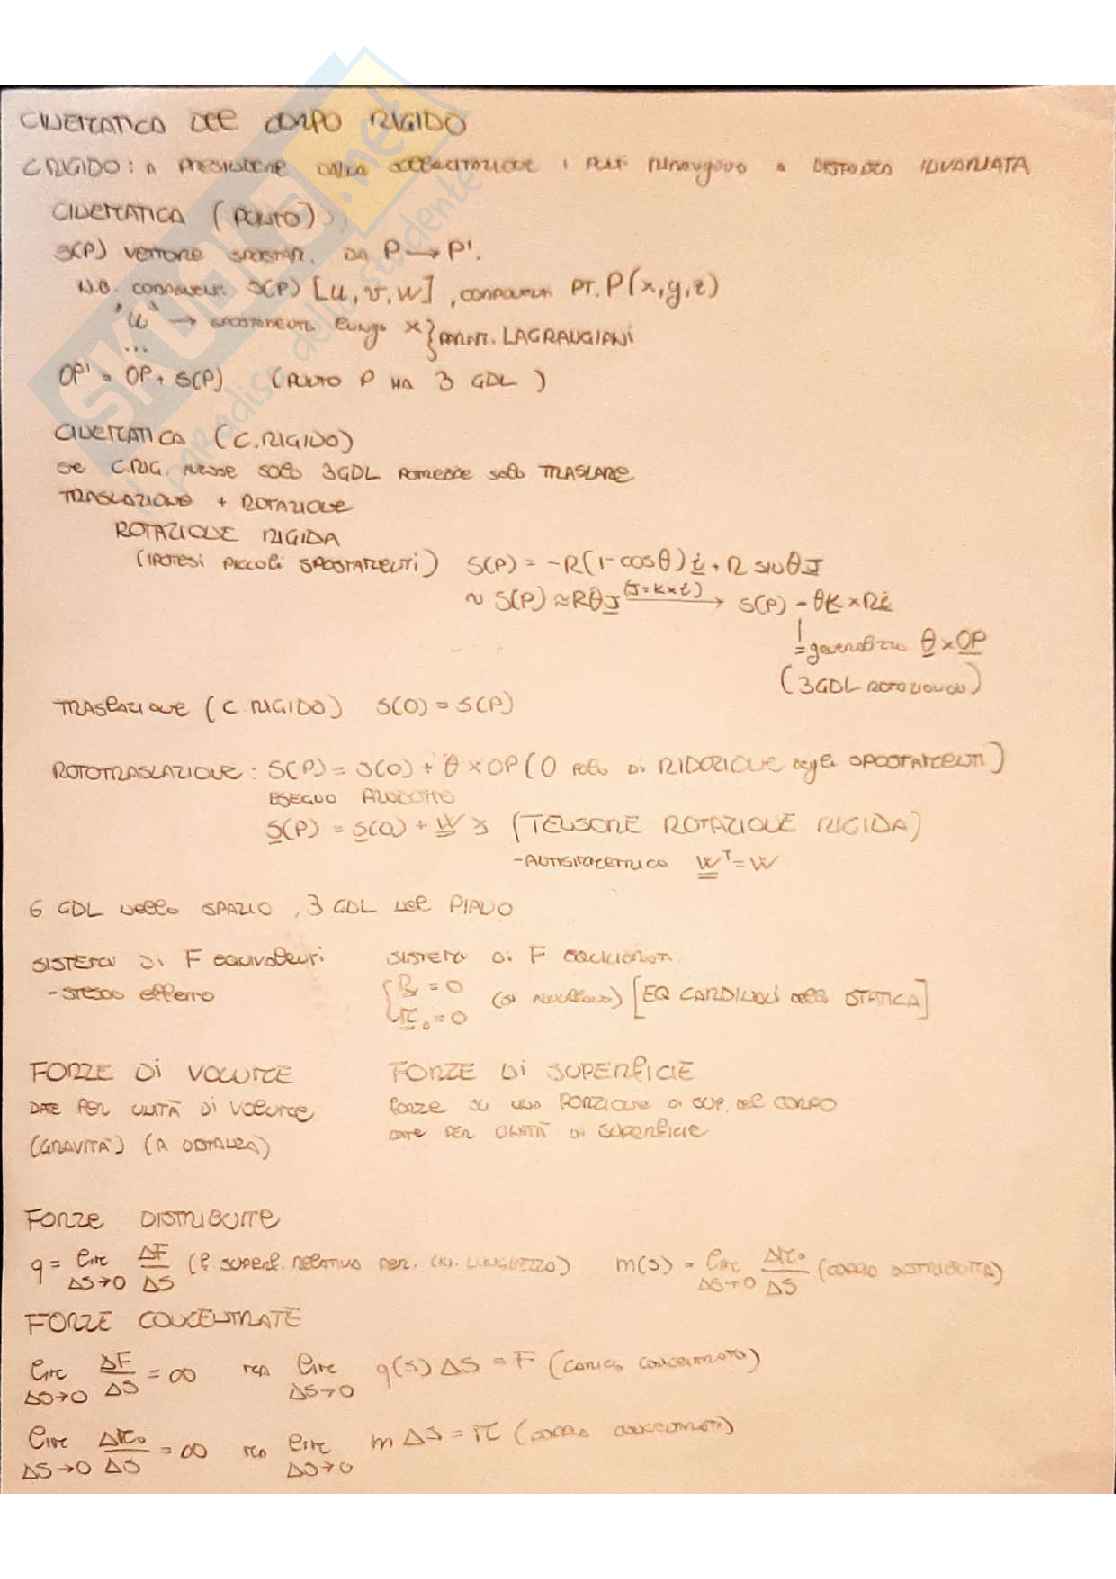 CINEMATICA DEL CORPO RIGIDO
C.RIGIDO: A PRESCINDERE DALLA SOLLECITAZIONE I PUNTI RIMANGONO A DISTANZA INVARIATA
CINEMATICA (PUNTO)
S(P) VETTORE SPOSTAM. DA P → P'.
N.B. COMPONENTI S(P) [u, v, w], COMPONENTI PT. P(x,y,z)
"u" → SPOSTAMENTI lungo x } PARAM. LAGRANGIANI
...
OP' = OP + S(P) (PUNTO P HA 3 GDL)
CINEMATICA (C.RIGIDO)
SE C.RIG. AVESSE SOLO 3GDL POTREBBE SOLO TRASLARE
TRASLAZIONE + ROTAZIONE
ROTAZIONE RIGIDA
(IPOTESI PICCOLI SPOSTAMENTI) S(P) = -R(1-cosθ)i + R sinθ J
~ S(P) ≈ Rθ J (J=K×i) → S(P) = θK × Ri
= generalizzo θ × OP
(3GDL ROTAZIONALI)
TRASLAZIONE (C.RIGIDO) S(O) = S(P)
ROTOTRASLAZIONE: S(P) = S(O) + θ × OP (O POLO DI RIDUZIONE degli SPOSTAMENTI)
ESEGUO PRODOTTO
S(P) = S(O) + W (TENSORE ROTAZIONE RIGIDA)
-ANTISIMMETRICO W^T = W
6 GDL NELLO SPAZIO, 3 GDL NEL PIANO
SISTEMA DI F EQUIVALENTI SISTEMA DI F EQUILIBRATI
-STESSO EFFETTO { R = 0 M₀ = 0 [EQ CARDINALI DELLA STATICA]
FORZE DI VOLUME FORZE DI SUPERFICIE
DATE PER UNITÀ DI VOLUME FORZE SU UNA PORZIONE DI SUP. DEL CORPO
(GRAVITÀ) (A DISTANZA) DATE PER UNITÀ DI SUPERFICIE
FORZE DISTRIBUITE
q = lim ΔS→0 ΔF/ΔS (F. SUPERF. RELATIVO PER UN. LUNGHEZZA) m(s) = lim ΔS→0 ΔM₀/ΔS (COPPIA DISTRIBUITA)
FORZE CONCENTRATE
lim ΔS→0 ΔF/ΔS = ∞ MA lim ΔS→0 q(s) ΔS = F (CARICO CONCENTRATO)
lim ΔS→0 ΔM₀/ΔS = ∞ MA lim ΔS→0 m ΔS = M (COPPIA CONCENTRATA)
SKUOLA.net
il paradiso dello studente